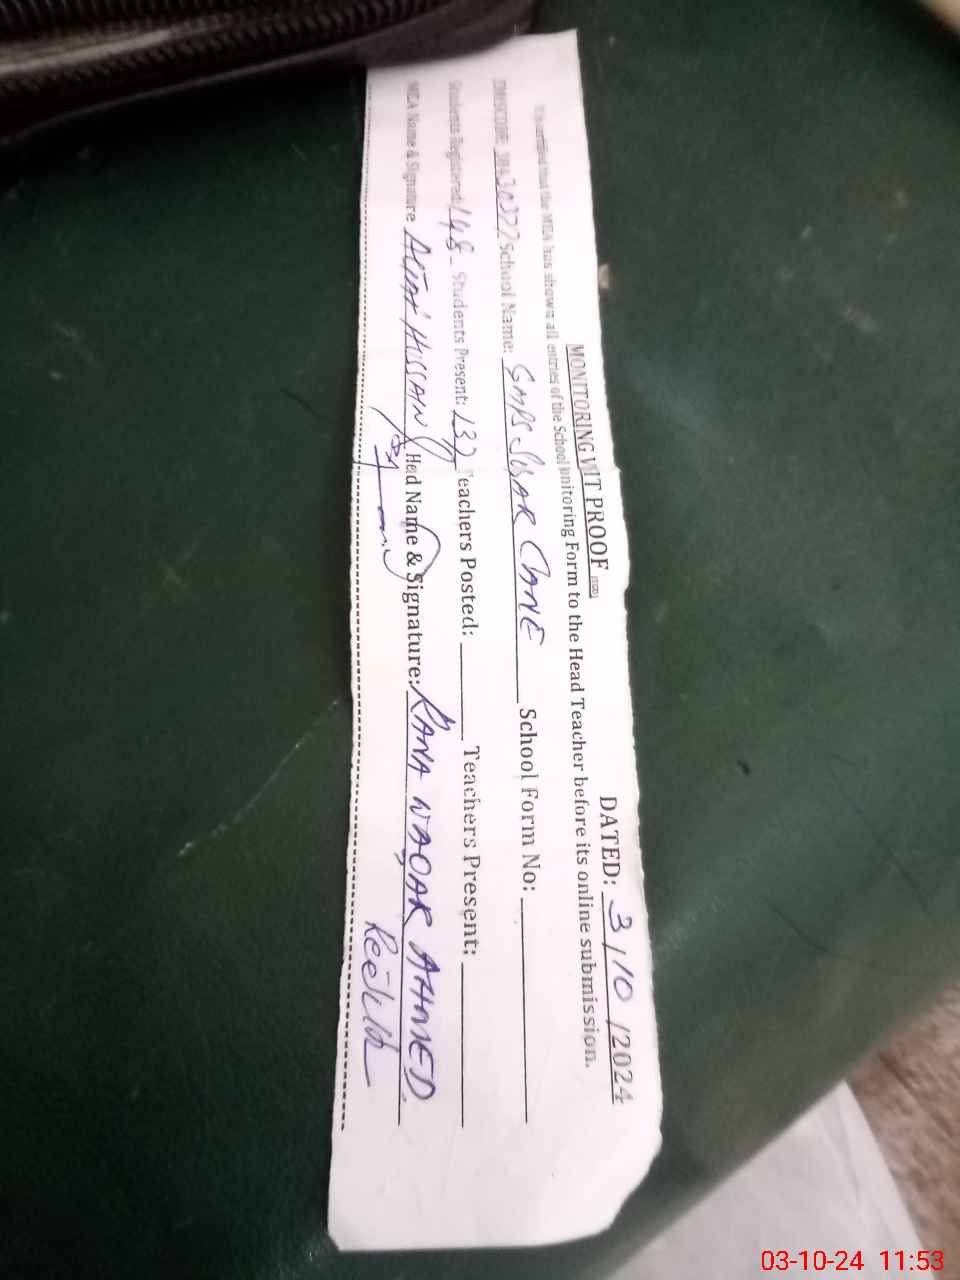 MONITORING VISIT PROOF DATED: 3/10/2024
the MEA has shown all entries of the School Monitoring Form to the Head Teacher before its online submission.
School Name: GMPS School Form No:
Students Registered: 148 Students Present: 137 Teachers Posted: Teachers Present:
MEA Name & Signature HUSSAIN Head Name & Signature: RANA WAQAR AHMED
03-10-24 11:53